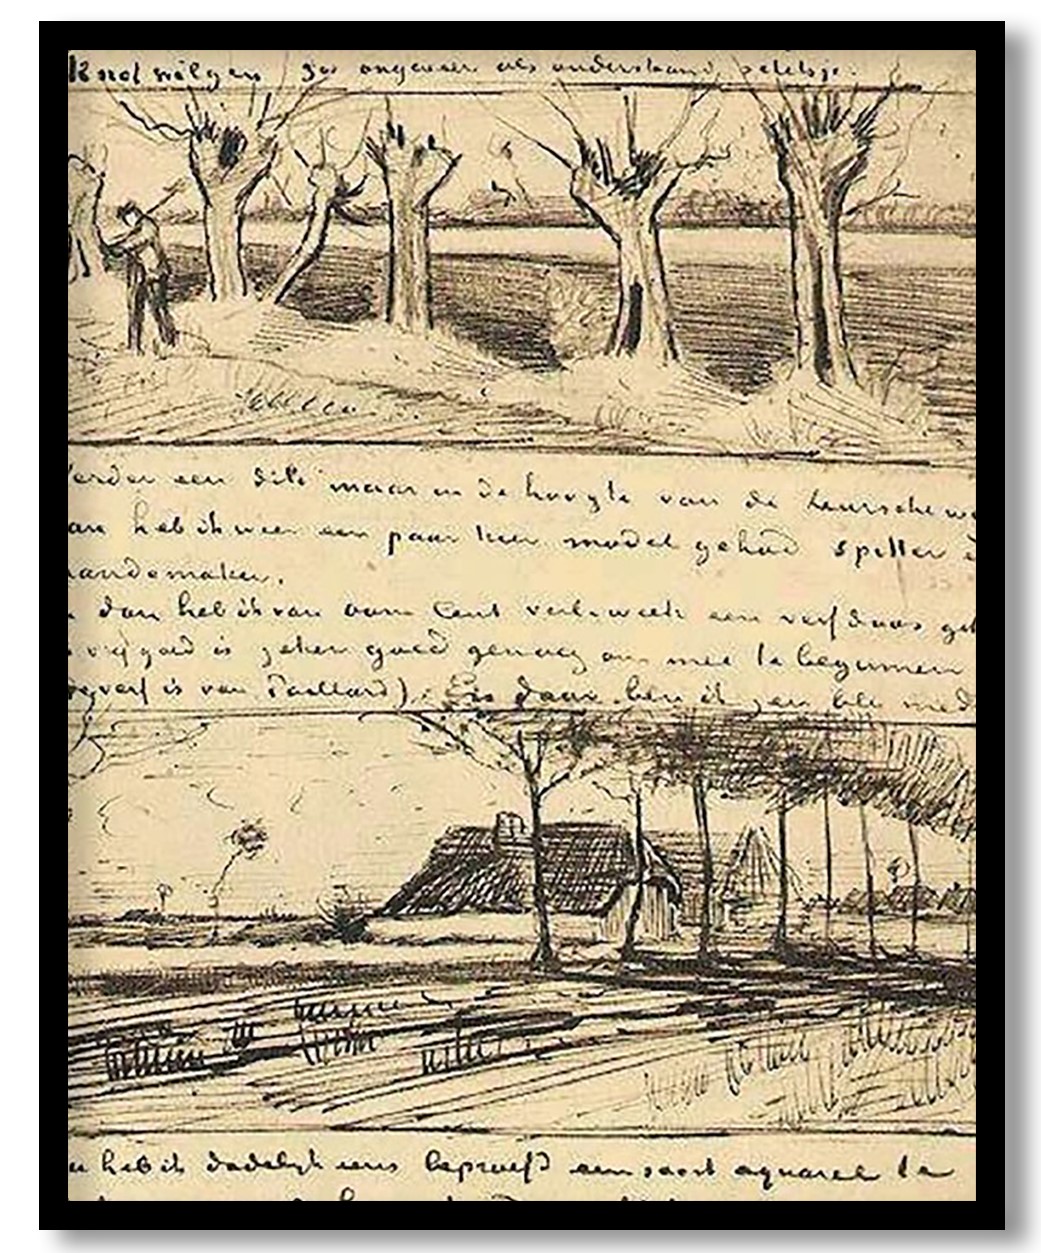 Knotwilgen zoo ongeveer als onderstaand schetsje.
erder een dito maar in de hoogte van de Leursche we
an heb ik weer een paar keer model gehad spitter &
andemaker.
n dan heb ik van oom Cent verl. week een verfdoos gek
vrij goed is zeker goed genoeg om mee te beginnen
verf is van Paillard). En daar ben ik zeer blij med
u heb ik dadelijk eens beproefd een soort aquarel te